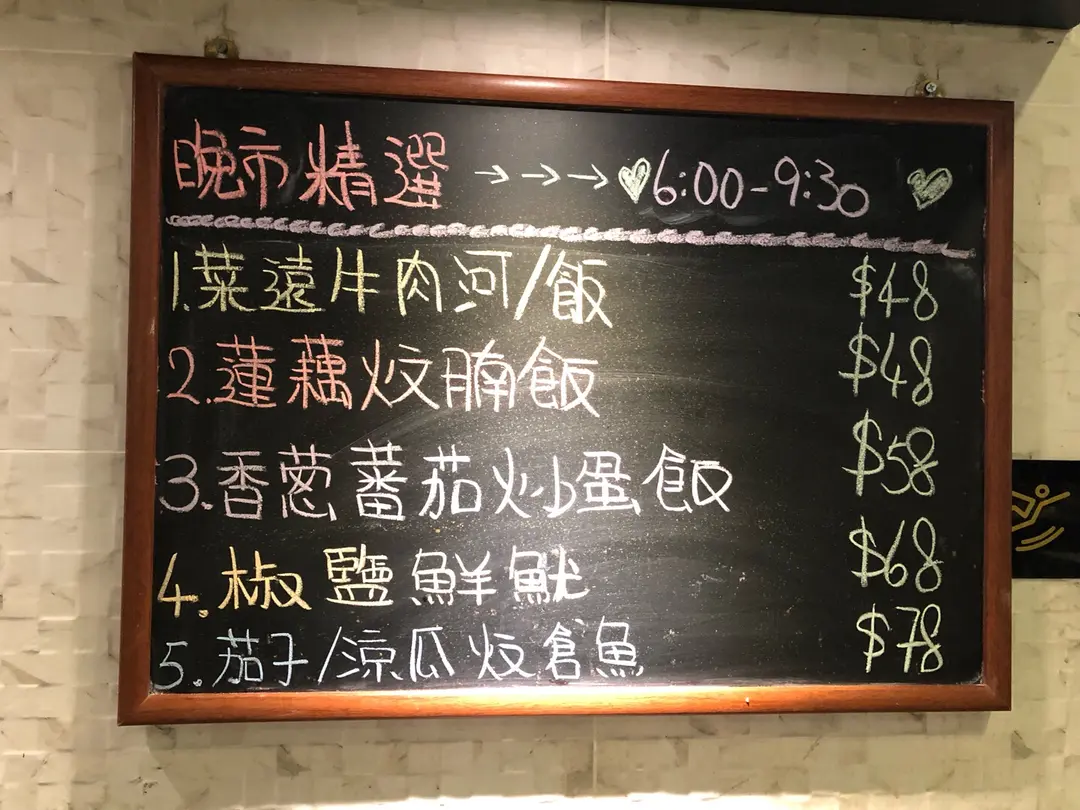 晚市精選 →→→♡6:00-9:30 ♡
1.菜遠牛肉河/飯 $48
2.蓮藕炆腩飯 $48
3.香葱蕃茄炒蛋飯 $58
4.椒鹽鮮魷 $68
5.茄子/涼瓜炆倉魚 $78